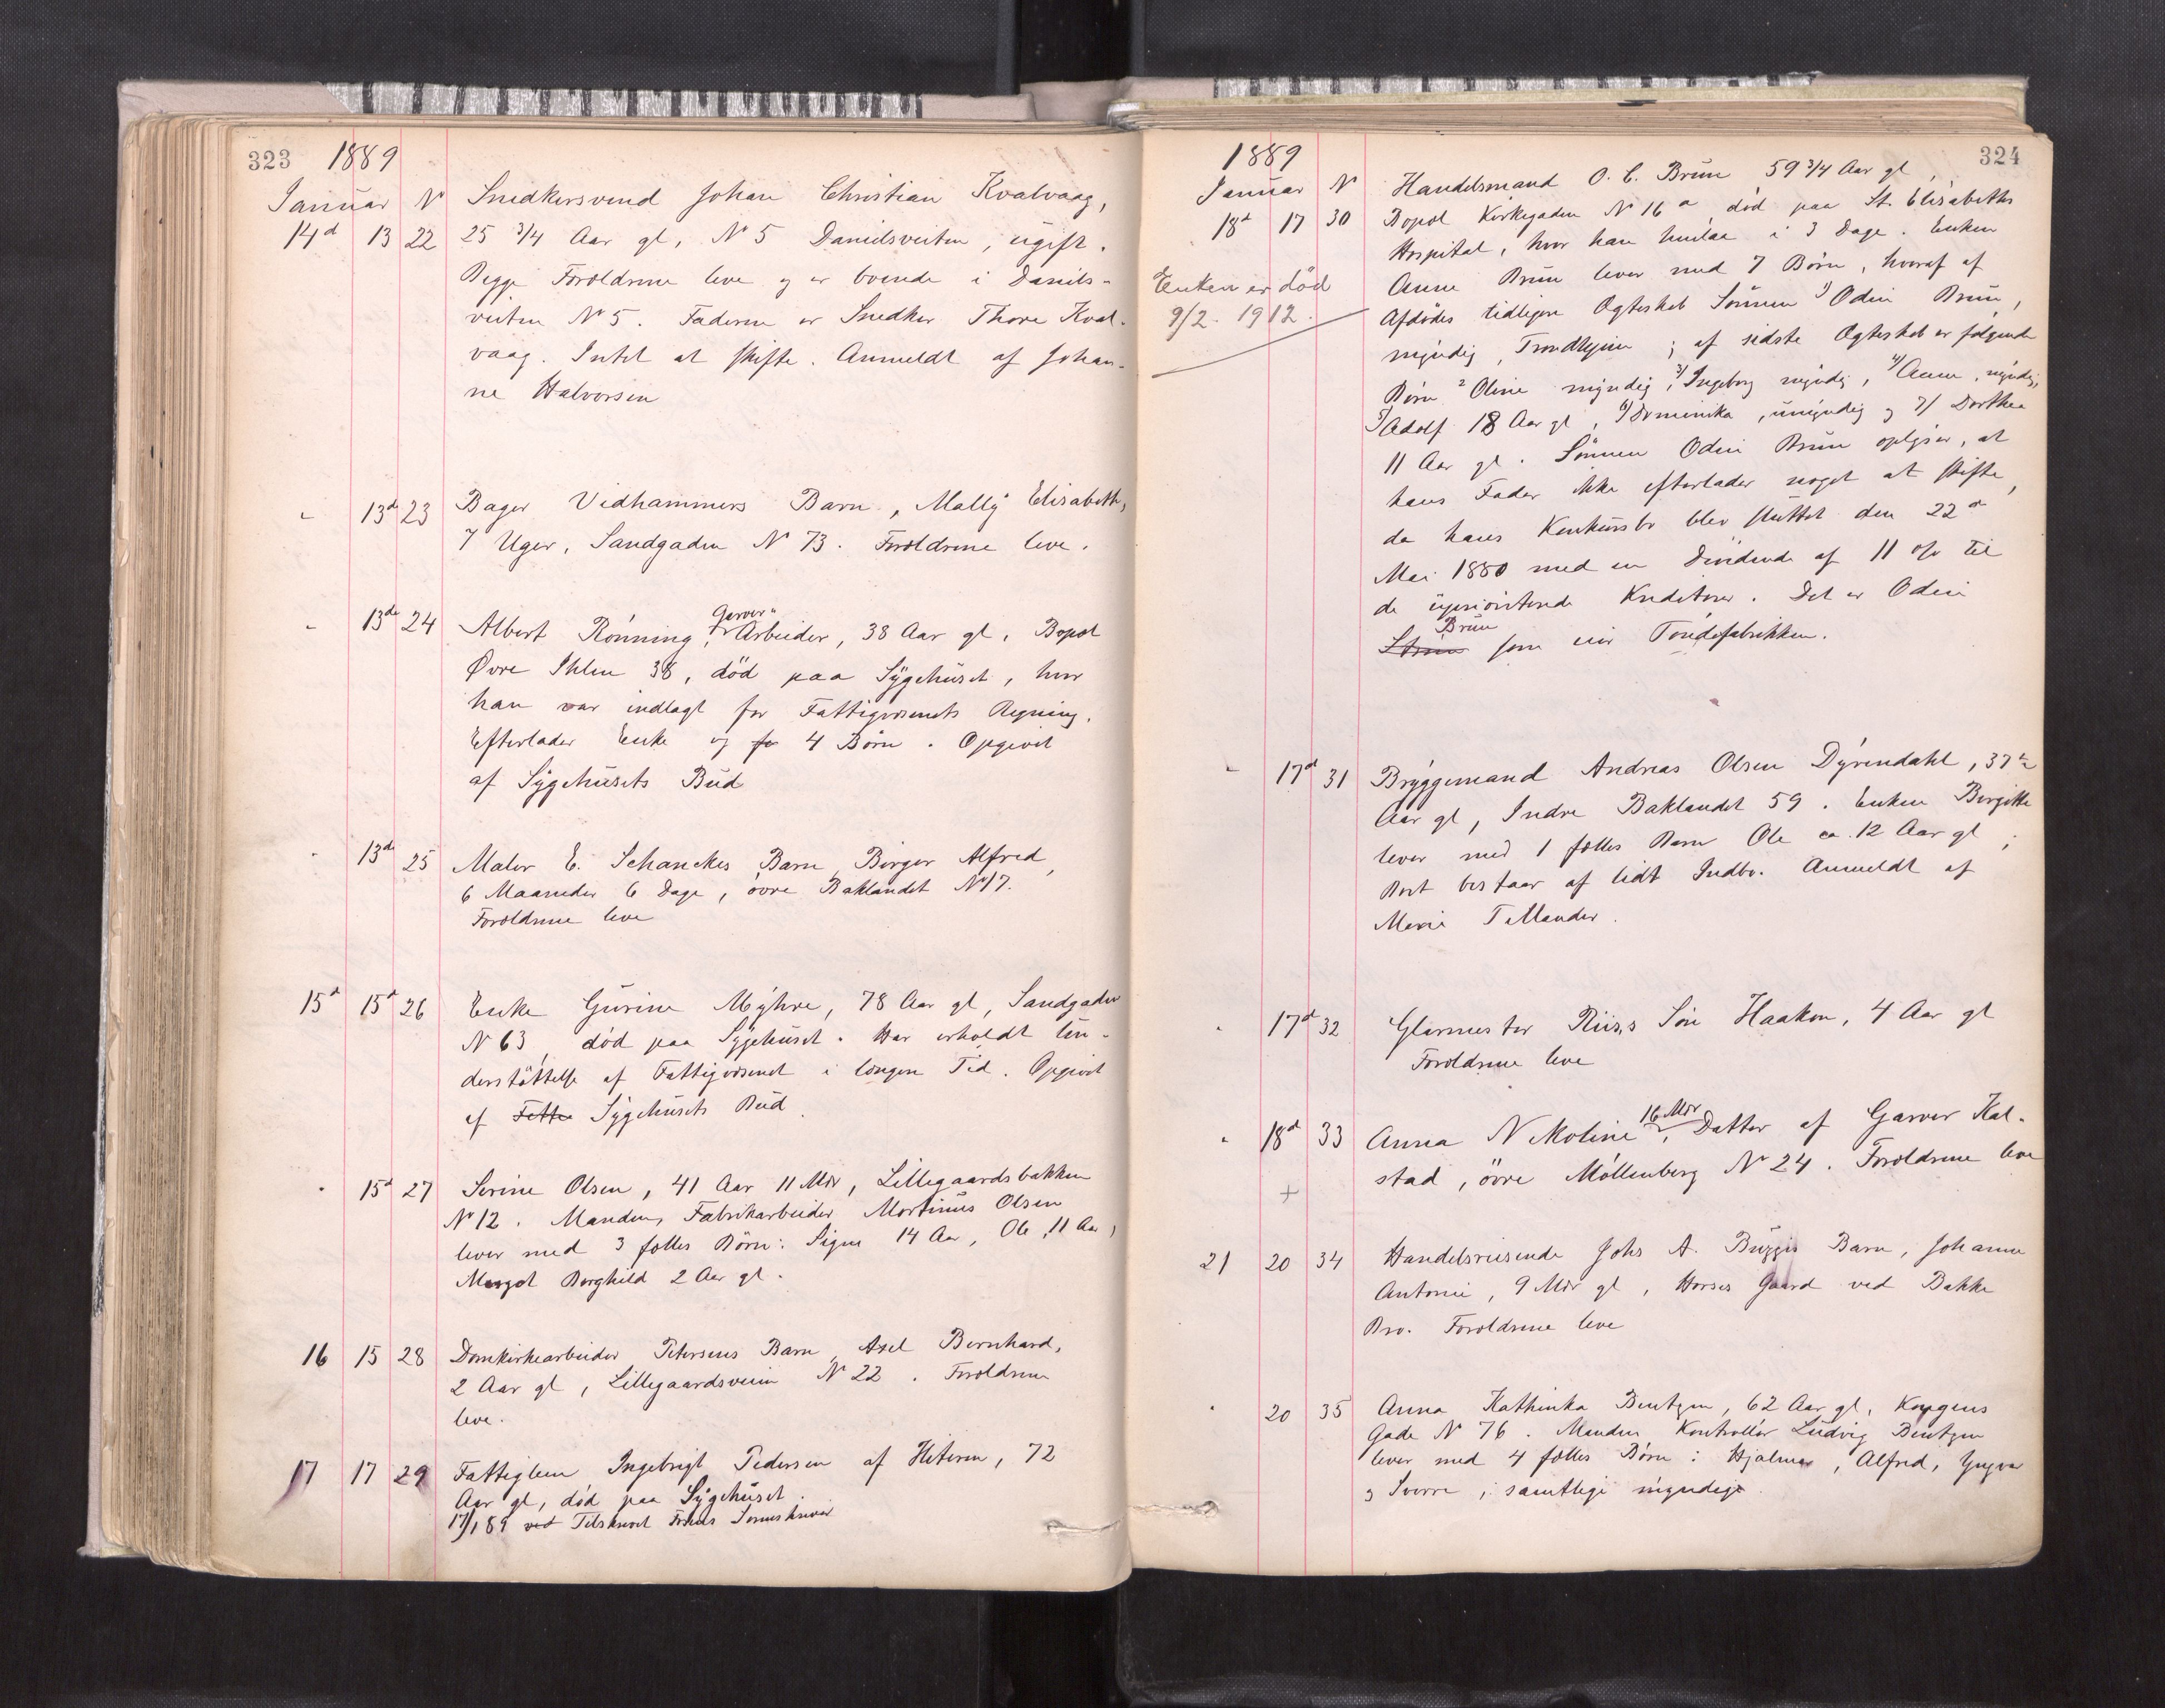 323 1889
Januar N Snedkersvend Johan Christian Kvalvaag,
14d 13 22 25 3/4 Aar gl, N 5 Danielsveiten, ugift.
Begge Forældrene leve og er boende i Daniels-
veiten N 5. Faderen er Snedker Thore Kval-
vaag. Intet at skifte. Anmeldt af Johan-
ne Halvorsen
" 13de 23 Bager Vidhammers Barn, Mally Elisabeth,
7 Uger, Sandgaden N 73. Forældrene leve.
" 13de 24 Albert Rønning, Garver-Arbeider, 38 Aar gl, Bopæl
Øvre Ihlen 38, død paa Sygehuset, hvor
han var indlagt for Fattigvæsenets Regning.
Efterlader Enke og 4 Børn. Opgivet
af Sygehusets Bud
" 13de 25 Maler E. Schanckes Barn, Birger Alfred,
6 Maaneder 6 Dage, øvre Baklandet N 17.
Forældrene leve
15d 15d 26 Enke Gurine Myhre, 78 Aar gl, Sandgaden
N 63, død paa Sygehuset. Har erholdt Un-
derstøttelse af Fattigvæsenet i længere Tid. Opgivet
af Sygehusets Bud.
" 15d 27 Serine Olsen, 41 Aar 11 Mdr, Lillegaardsbakken
N 12. Manden, Fabrikarbeider Martinus Olsen
lever med 3 fælles Børn: Signe 14 Aar, Ole, 11 Aar,
Margot Borghild 2 Aar gl.
16 15 28 Domkirkearbeider Petersens Barn, Axel Bernhard,
2 Aar gl, Lillegaardsveien N 22. Forældrene
leve.
17 17 29 Fattiglem Ingebrigt Pedersen af Hiteren, 72
Aar gl, død paa Sygehuset.
17/1 89 Tilskrevet Fosens Sorenskriver
1889 324
Januar N Handelsmand O. C. Brun 59 3/4 Aar gl,
18d 17 30 Bopæl Kirkegaden N 16 a, død paa St. Elisabeths
Hospital, hvor han henlaa i 3 Dage. Enken
Anne Brun lever med 7 Børn, hvoraf af
Enken er død
9/2. 1912.
Afdødes tidligere Ægteskab Sønnen 1) Odin Brun,
myndig, Trondhjem; af sidste Ægteskab er følgende
Børn 2 Oline myndig, 3) Ingeborg myndig, 4) Anne, myndig,
5) Adolf 18 Aar gl, 6) Dominika, umyndig og 7) Dorthea
11 Aar gl. Sønnen Odin Brun oplyser, at
hans Fader ikke efterlader noget at skifte,
da hans Konkursbo blev sluttet den 22d
Mai 1880 med en Dividende af 11 % til
de uprioriterede Kreditorer. Det er Odin
Brun som eier Tøndefabrikken.
" 17d 31 Bryggemand Andreas Olsen Dyrendahl, 37
Aar gl, Indre Baklandet 59. Enken Bergitte
lever med 1 fælles Barn Ole ca. 12 Aar gl;
Boet bestaar af lidt Indbo. Anmeldt af
Marie Tellander.
" 17d 32 Glarmester Riis's Søn Haakon, 4 Aar gl
Forældrene leve
" 18d 33 Anna Nikoline, 16 Mdr, Datter af Garver Kal-
stad, øvre Møllenberg N 24. Forældrene leve
+
21 20 34 Handelsreisende Johs A. Bugges Barn, Johanne
Antonie, 9 Mdr gl, Horses Gaard ved Bakke
Bro. Forældrene leve
" 20 35 Anna Kathinka Bentzen, 62 Aar gl, Kongens
Gade N 76. Manden Kontrollør Ludvig Bentzen
lever med 4 fælles Børn: Hjalmar, Alfred, Yngvar
og Sverre, samtlige myndige.